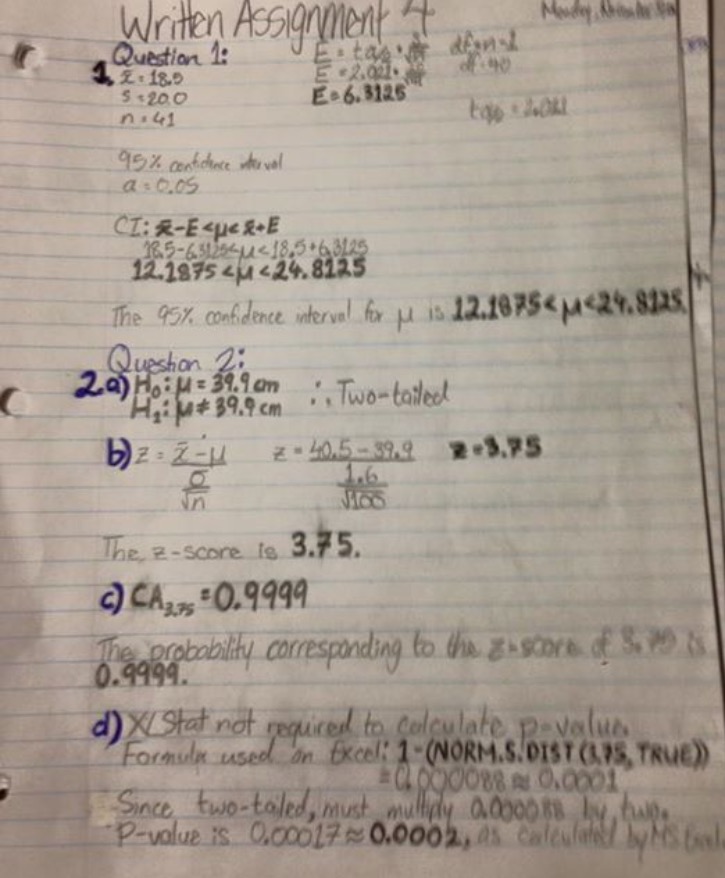 Written Assignment 4
Question 1:
1. x̄ = 18.5
s = 20.0
n = 41
E = 6.3125
df = n-1
df = 40
95% confidence interval
a = 0.05
CI: x̄-E<μ<x̄+E
18.5-6.3125<μ<18.5+6.3125
12.1875<μ<24.8125
The 95% confidence interval for μ is 12.1875<μ<24.8125.
Question 2:
2.a) H₀: μ = 39.9 cm
H₁: μ ≠ 39.9 cm
∴ Two-tailed
b) z = x̄-μ / σ/√n z = 40.5-39.9 / 1.6/√100 z = 3.75
The z-score is 3.75.
c) CA₃.₇₅ = 0.9999
The probability corresponding to the z-score of 3.75 is
0.9999.
d) XLStat not required to calculate p-value.
Formula used on Excel: 1-(NORM.S.DIST(3.75, TRUE))
= 0.000088 ≈ 0.0001
Since two-tailed, must multiply 0.000088 by two.
P-value is 0.00017 ≈ 0.0002, as calculated by MS